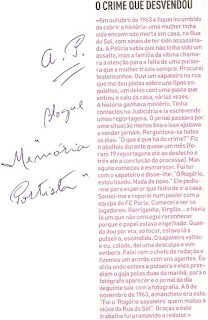 O CRIME QUE DESVENDOU
«Em outubro de 1963 fiquei incumbido
de cobrir a história: uma mulher tinha
sido encontrada morta em casa, na Rua
do Sol, com sinais de ter sido assassina-
da. A Polícia sabia que não tinha sido um
assalto, mas a família da vítima chama-
ra a atenção para a falta de uma pulsei-
ra que a mulher trazia sempre. Procurei
testemunhos. Ouvi um sapateiro na rua
que me deu pistas sobre uns tipos es-
quisitos, um deles com uma pasta que
entrou e saiu da casa, várias vezes.
A história ganhava mistério. Tinha
contactos na Judiciária e ia escrevendo
umas reportagens. O jornal passava por
uma situação menos boa e isso ajudava
a vender jornais. Perguntava-se todos
os dias: "O que é que há do crime?" Fiz
trabalhos durante quase um mês [fo-
ram 19 reportagens até ao desfecho e
três até à conclusão do processo]. Mas
aquilo começou a esmorecer. Fui ter
com o sapateiro e disse-lhe: "Ó Rogério,
estou lixado. Nada de novo." Ele pediu-
-me para esperar que tinha de ir a casa.
Sentei-me e reparei num poster com a
equipa do FC Porto. Comecei a ver os
jogadores: Barrigana, Virgílio... e havia
lá um que não consegui reconhecer
porque o papel estava engelhado. Quan-
do dou por ela, ao tocar, estava lá a
pulseira, escondida. O sapateiro voltou
e eu, calado, dei uma desculpa e vim
embora. Falei com o chefe de redação e
fizemos um acordo com uns agentes. Eu
dizia onde estava a pulseira e eles pren-
diam o gajo pelas duas da manhã, para o
fotógrafo aparecer e o jornal do dia
seguinte sair com a fotografia. A 8 de
novembro de 1963, a manchete era esta:
"Foi o 'Rogério sapateiro' quem matou a
viúva da Rua do Sol". Graças a este
trabalho fui promovido a redator.»
A. P.
Blogue
"Memória
Portista"